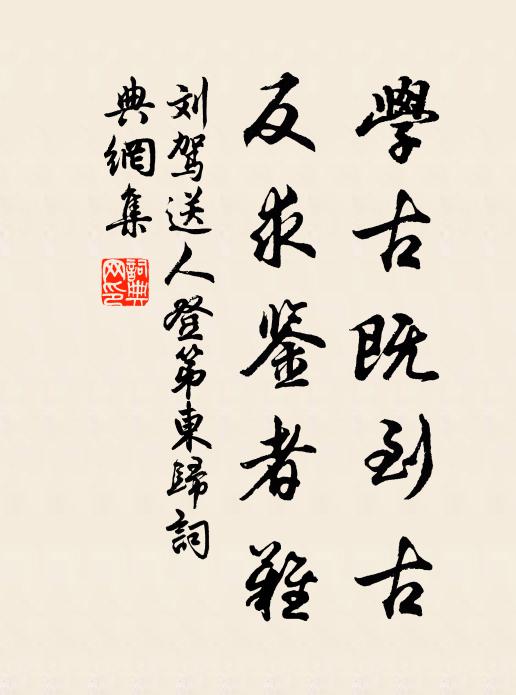 學古既到古
反求鉴者難
刘驾送人登第東歸詞
典網集
詞典网印